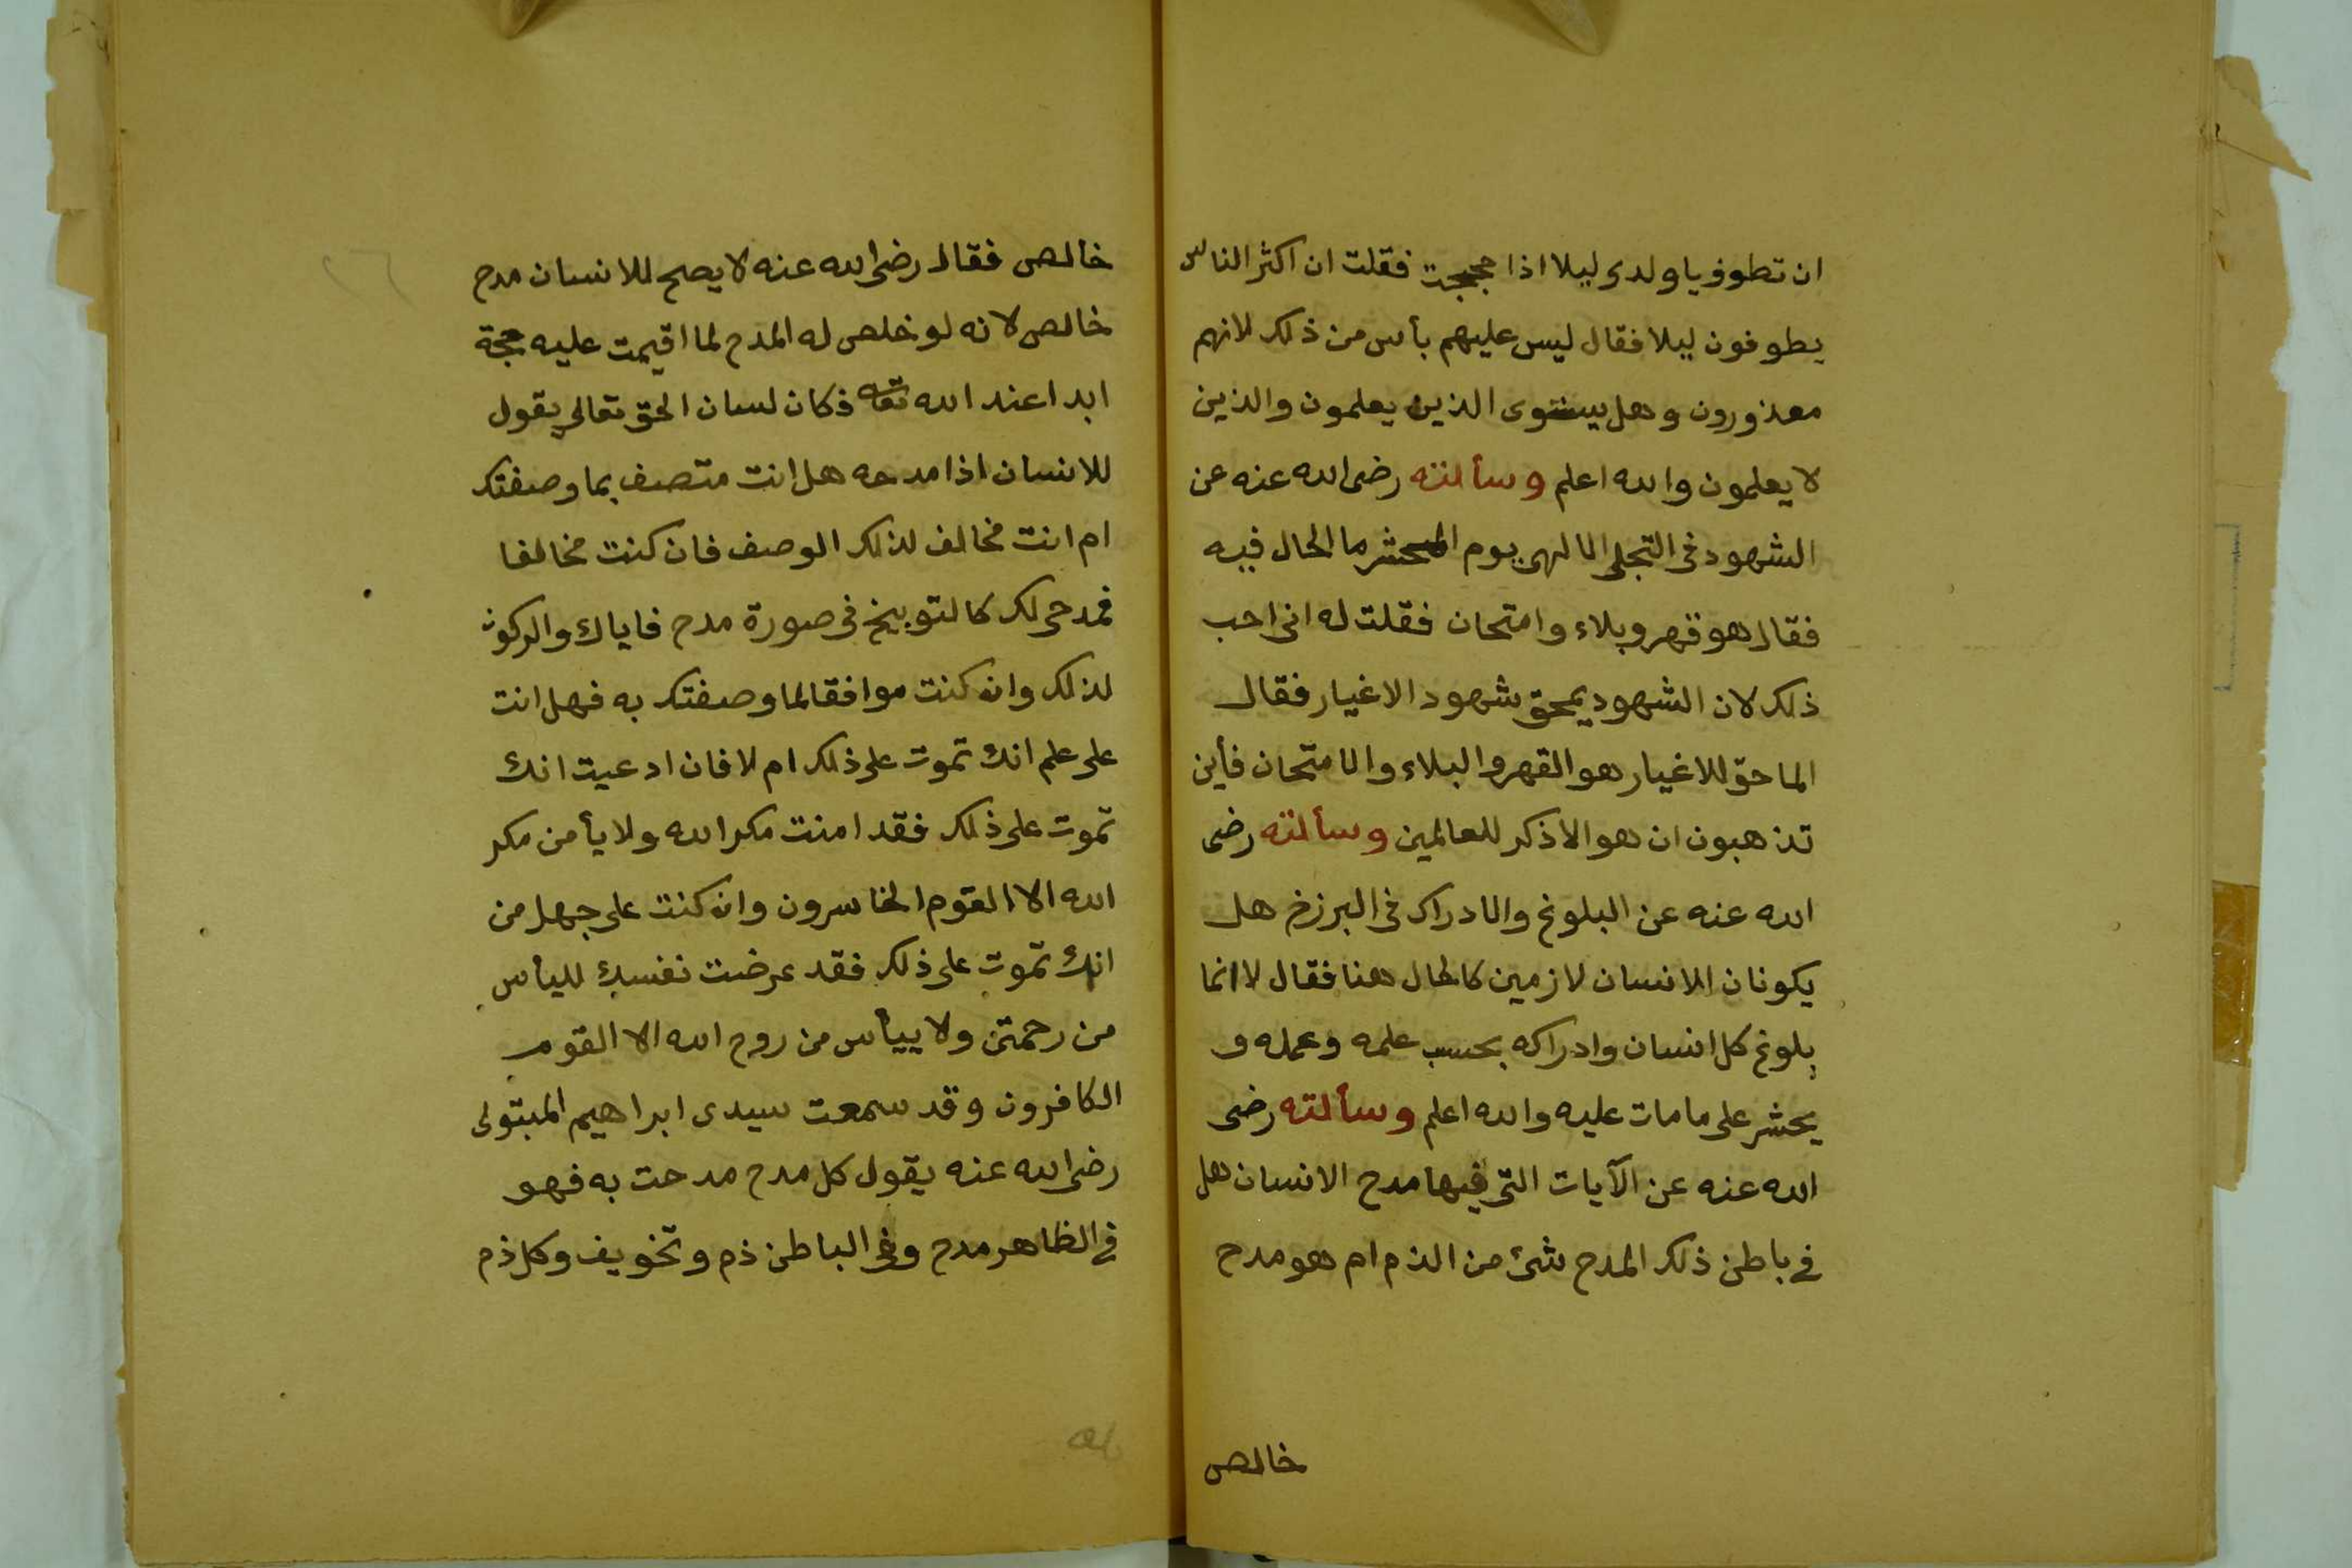 ان تطوف ياولدى ليلا اذا حججت فقلت ان اكثر الناس
يطوفون ليلا فقال ليس عليهم بأس من ذلك لانهم
معذورون وهل يستوى الذين يعلمون والذين
لا يعلمون والله اعلم وسألته رضى الله عنه عن
الشهود فى التجلى الالهى يوم المحشر ما الحال فيه
فقال هو قهر وبلاء وامتحان فقلت له انى احب
ذلك لان الشهود يمحق شهود الاغيار فقال
الماحق للاغيار هو القهر والبلاء والامتحان فأين
تذهبون ان هو الا ذكر للعالمين وسألته رضى
الله عنه عن البلوغ والادراك فى البرزخ هل
يكونان للانسان لازمين كالحال هنا فقال لا انما
بلوغ كل انسان وادراكه بحسب علمه وعمله و
يحشر على ما مات عليه والله اعلم وسألته رضى
الله عنه عن الآيات التى فيها مدح الانسان هل
فى باطن ذلك المدح شئ من الذم ام هو مدح
خالص
خالص فقال رضى الله عنه لا يصح للانسان مدح
خالص لانه لو خلص له المدح لما اقيمت عليه حجة
ابدا عند الله تعالى فكان لسان الحق تعالى يقول
للانسان اذا مدحه هل انت متصف بما وصفتك
ام انت مخالف لذلك الوصف فان كنت مخالفا
فمدحى لك كالتوبيخ فى صورة مدح فاياك والركون
لذلك وان كنت موافقا لما وصفتك به فهل انت
على علم انك تموت على ذلك ام لا فان ادعيت انك
تموت على ذلك فقد امنت مكر الله ولا يأمن مكر
الله الا القوم الخاسرون وان كنت على جهل من
انك تموت على ذلك فقد عرضت نفسك لليأس
من رحمتى ولا ييأس من روح الله الا القوم
الكافرون وقد سمعت سيدى ابراهيم المبتولى
رضى الله عنه يقول كل مدح مدحت به فهو
فى الظاهر مدح وفى الباطن ذم وتخويف وكل ذم